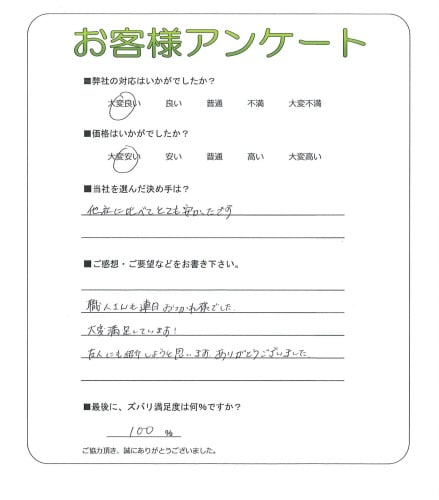 お客様アンケート
■弊社の対応はいかがでしたか？
大変良い 良い 普通 不満 大変不満
■価格はいかがでしたか？
大変安い 安い 普通 高い 大変高い
■当社を選んだ決め手は？
他社に比べてとても安かったです
■ご感想・ご要望などをお書き下さい。
職人さんも連日おつかれ様でした。
大変満足しています!
友人にも紹介しようと思います。ありがとうございました。
■最後に、ズバリ満足度は何%ですか？
100 %
ご協力頂き、誠にありがとうございました。